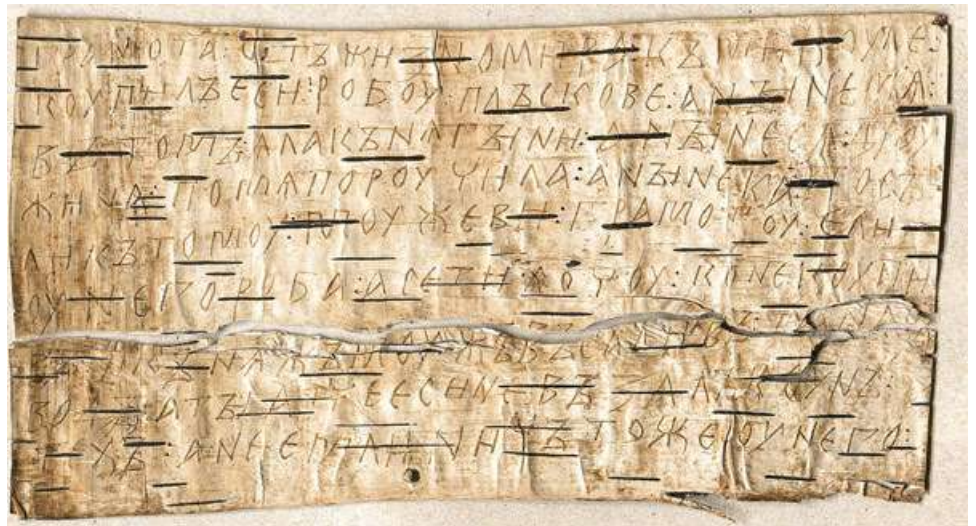 грамота : ѿтъ жизномира : къ микоуле :
коупилъ еси : робоу : плъскове : а ныне мѧ :
въ томъ : ѧла кънѧгыни : а ныне сѧ дроу
жина : по мѧ пороучила : а ныне ка : посъ
ли къ томоу : моужеви : грамотоу : е ли
оу него роба : а се ти хочоу : коне коупи
въ : и кънѧжъ моужъ въсадивъ : та на съ
воды : а ты атче еси не възалъ коунъ :
техъ : а не емли : ничъто же оу него :